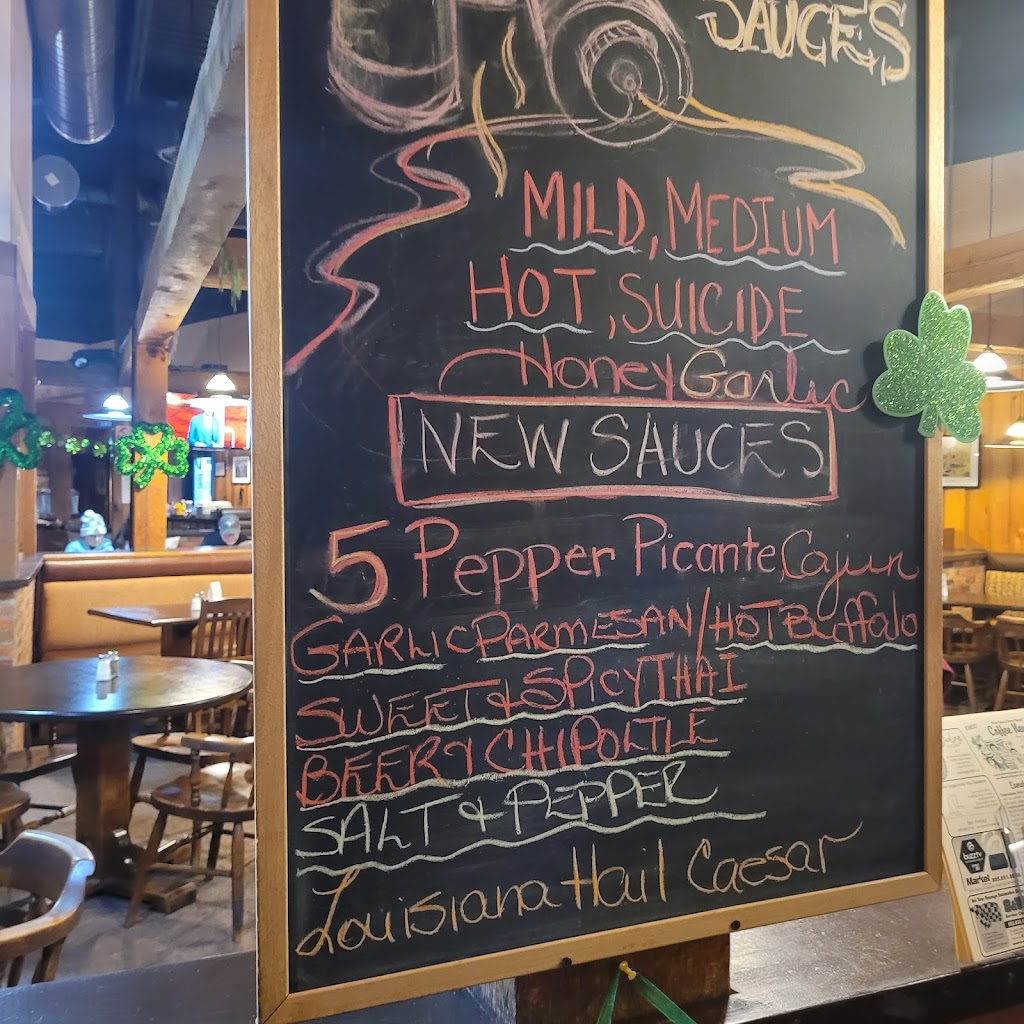 SAUCES
MILD, MEDIUM
HOT, SUICIDE
Honey Garlic
NEW SAUCES
5 Pepper Picante, Cajun
GARLIC PARMESAN/HOT Buffalo
SWEET & SPICY THAI
BEERY CHIPOLTLE
SALT & PEPPER
Louisiana Hail Caesar
Coffee
buzztv
Market